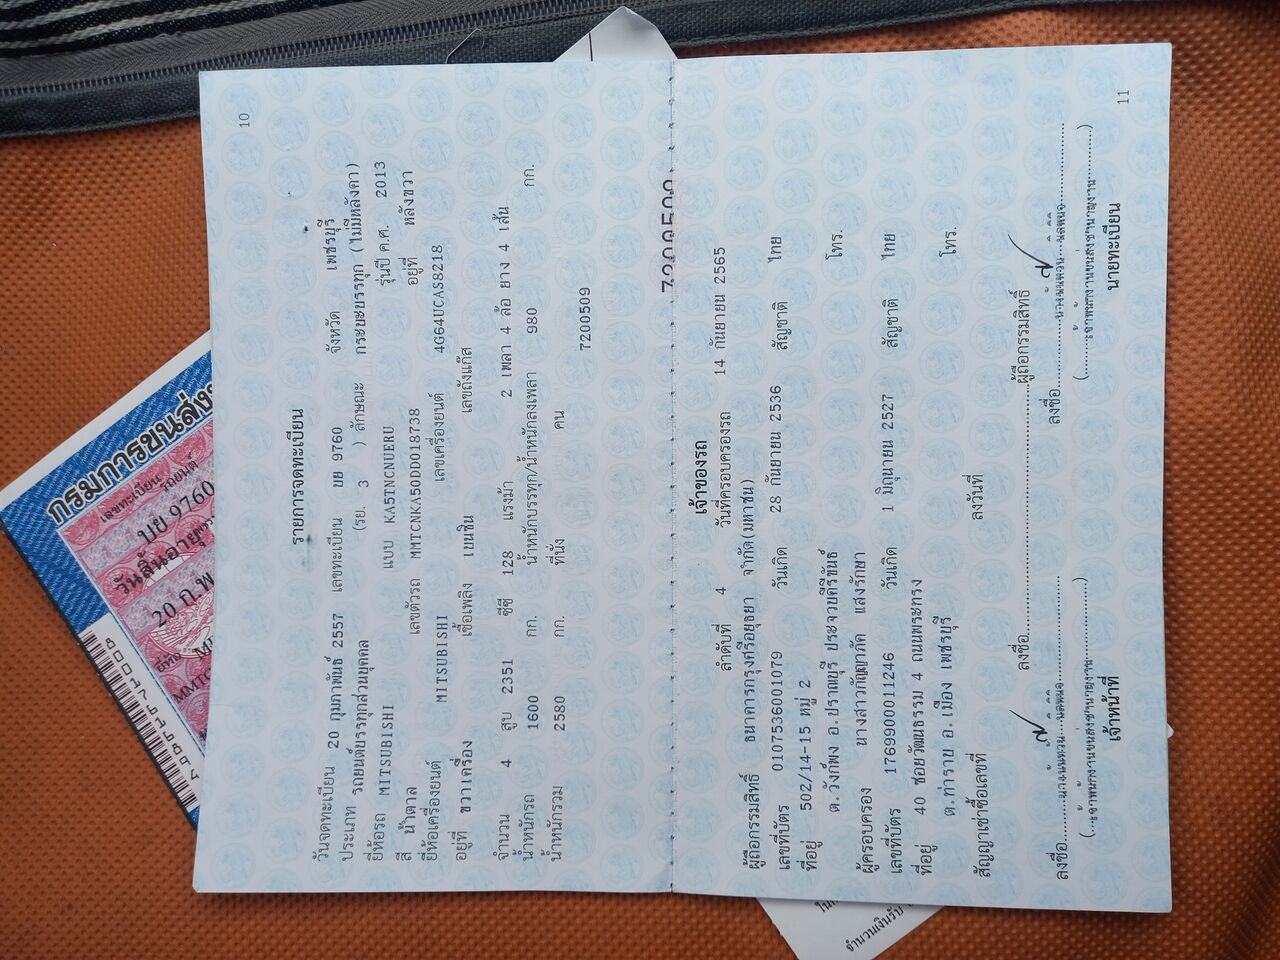 10
รายการจดทะเบียน
วันจดทะเบียน 20 กุมภาพันธ์ 2557 เลขทะเบียน บย 9760 จังหวัด เพชรบุรี
ประเภท รถยนต์บรรทุกส่วนบุคคล (รย. 3 ) ลักษณะ กระบะบรรทุก (ไม่มีหลังคา)
ยี่ห้อรถ MITSUBISHI แบบ KA5TNCNUERU รุ่นปี ค.ศ. 2013
สี น้ำตาล เลขตัวรถ MMTCNKA50DD018738 อยู่ที่ หลังขวา
ยี่ห้อเครื่องยนต์ MITSUBISHI เลขเครื่องยนต์ 4G64UCAS8218
อยู่ที่ ขวาเครื่อง เชื้อเพลิง เบนซิน เลขถังแก๊ส
จำนวน 4 สูบ 2351 ซีซี 128 แรงม้า 2 เพลา 4 ล้อ ยาง 4 เส้น
น้ำหนักรถ 1600 กก. น้ำหนักบรรทุก/น้ำหนักลงเพลา 980 กก.
น้ำหนักรวม 2580 กก. ที่นั่ง คน
7200509
เจ้าของรถ
ลำดับที่ 4 วันที่ครอบครองรถ 14 กันยายน 2565
ผู้ถือกรรมสิทธิ์ ธนาคารกรุงศรีอยุธยา จำกัด(มหาชน)
เลขที่บัตร 0107536001079 วันเกิด 28 กันยายน 2536 สัญชาติ ไทย
ที่อยู่ 502/14-15 หมู่ 2 โทร.
ต.วังก์พง อ.ปราณบุรี ประจวบคีรีขันธ์
ผู้ครอบครอง นางสาวกัญญาภัค แสงรักษา
เลขที่บัตร 1769900011246 วันเกิด 1 มิถุนายน 2527 สัญชาติ ไทย
ที่อยู่ 40 ซอยวัฒนธรรม 4 ถนนพระทรง โทร.
ต.ท่าราบ อ.เมือง เพชรบุรี
สัญญาเช่าซื้อเลขที่ ลงวันที่
ลงชื่อ ผู้ถือกรรมสิทธิ์
ลงชื่อ ลงชื่อ
(เจ้าพนักงานขนส่งชำนาญงาน) (เจ้าพนักงานขนส่งชำนาญงาน)
เจ้าหน้าที่ นายทะเบียน
11
กรมการขนส่ง
เลขทะเบียน รถยนต์
บย 9760
วันสิ้นอายุ
20 ก.พ
ยี่ห้อ
จำนวนเงินรับ